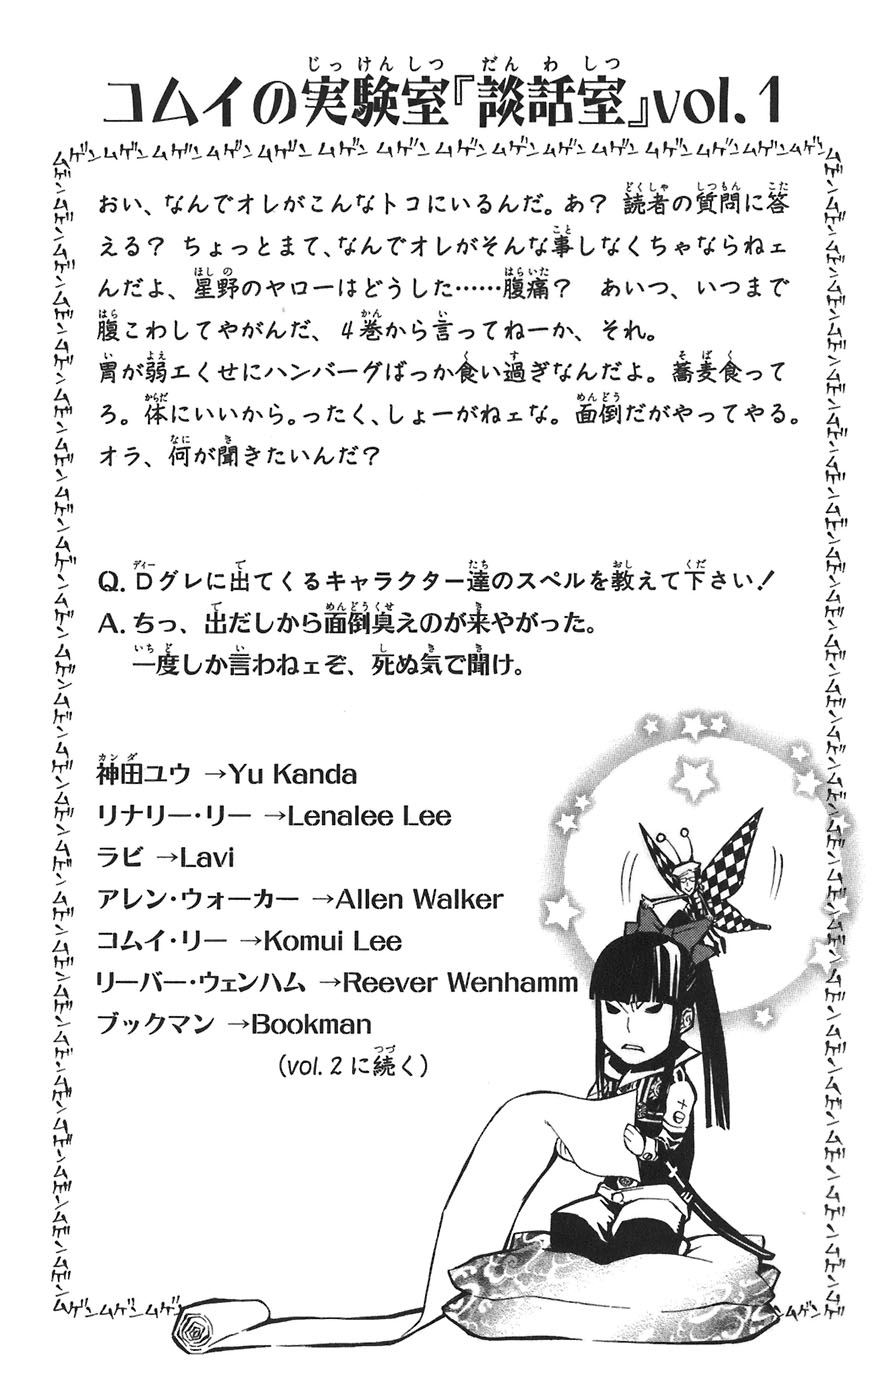 コムイの実験室『談話室』vol.1
ムゲンムゲンムゲンムゲンムゲンムゲンムゲンムゲンムゲンムゲンムゲンムゲンムゲン
おい、なんでオレがこんなトコにいるんだ。あ? 読者の質問に答
える? ちょっとまて、なんでオレがそんな事しなくちゃならねェ
んだよ、星野のヤローはどうした……腹痛? あいつ、いつまで
腹こわしてやがんだ、4巻から言ってねーか、それ。
胃が弱エくせにハンバーグばっか食い過ぎなんだよ。蕎麦食って
ろ。体にいいから。ったく、しょーがねェな。面倒だがやってやる。
オラ、何が聞きたいんだ?
Q. Dグレに出てくるキャラクター達のスペルを教えて下さい!
A. ちっ、出だしから面倒臭えのが来やがった。
一度しか言わねェぞ、死ぬ気で聞け。
神田ユウ →Yu Kanda
リナリー・リー →Lenalee Lee
ラビ →Lavi
アレン・ウォーカー →Allen Walker
コムイ・リー →Komui Lee
リーバー・ウェンハム →Reever Wenhamm
ブックマン →Bookman
(vol.2に続く)
ムゲンムゲンムゲン